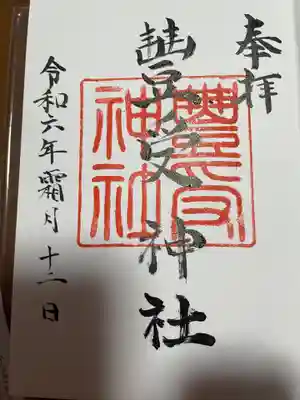 奉拝
豐受神社
豊受
神社
令和六年霜月十二日